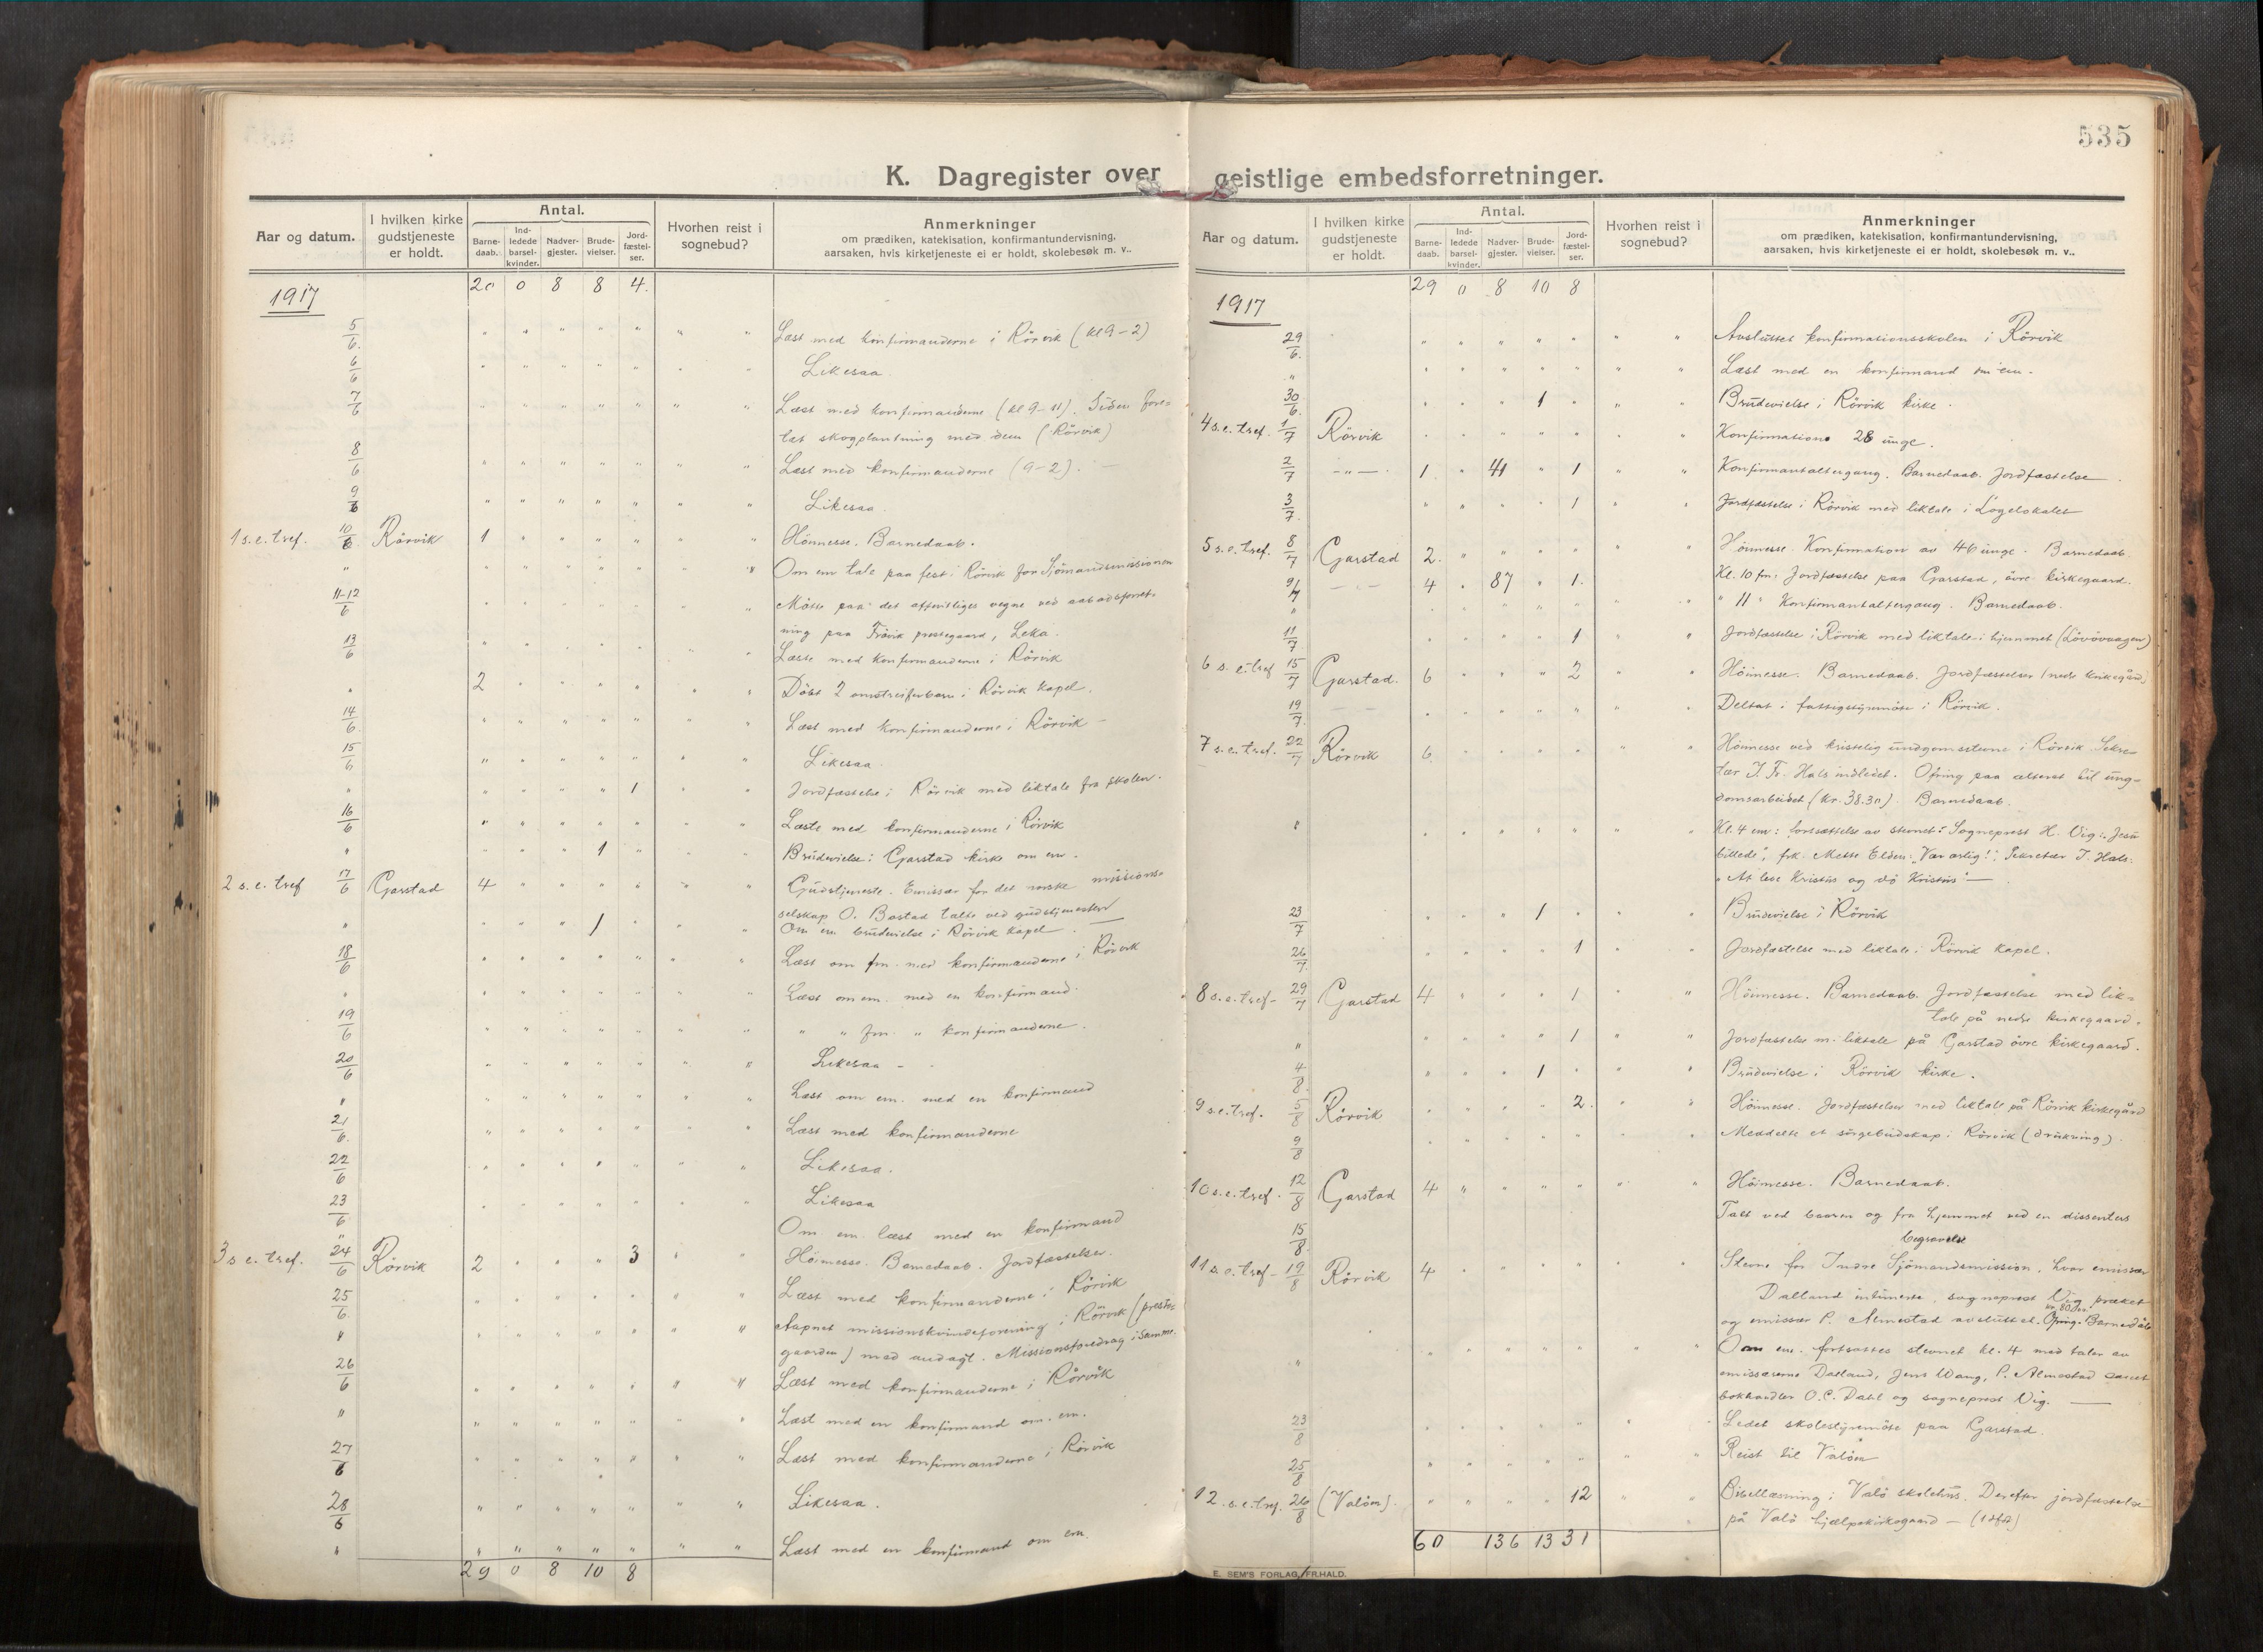 535
K. Dagregister over geistlige embedsforretninger.
Aar og datum.
I hvilken kirke gudstjeneste er holdt.
Antal.
Barne-daab.
Ind-ledede barsel-kvinder.
Nadver-gjester.
Brude-vielser.
Jord-fæstel-ser.
Hvorhen reist i sognebud?
Anmerkninger
om prædiken, katekisation, konfirmantundervisning,
aarsaken, hvis kirketjeneste ei er holdt, skolebesøk m. v..
1917 20 0 8 8 4.
5/6. Læst med konfirmanderne i Rörvik (kl 9-2)
6/6 Likesaa.
7/6 Læst med konfirmanderne (kl 9-11). Siden fore-
tat skogplantning med dem (Rörvik)
8/6 Læst med konfirmanderne (9-2). —
9/6 Likesaa.
1 s.e. tref. 10/6. Rörvik 1 " " " " Höimesse. Barnedaab.
" Om em tale paa fest i Rörvik for Sjömandsmissionen
11-12/6 Mötte paa det offentliges vegne ved aabodsforret-
ning paa Frövik prestegaard, Leka.
13/6 Læste med konfirmanderne i Rörvik
" 2 " " " " Döbt 2 omstreiferbarn i Rörvik kapel.
14/6. Læst med konfirmanderne i Rörvik —
15/6 Likesaa.
" " " " " 1 Jordfæstelse i Rörvik med liktale fra skolen.
16/6 Læste med konfirmanderne i Rörvik
" " " " 1 " Brudevielse i Garstad kirke om em.
2 s.e. tref 17/6 Garstad 4 " " " " Gudstjeneste. Emissær for det norske missions-
selskap O. Bastad talte ved gudstjenesten
" " " " 1 " Om em brudevielse i Rörvik kapel. —
18/6 Læst om fm. med konfirmanderne i Rörvik
" Læst om em. med en konfirmand.
19/6 " " fm. " konfirmanderne.
20/6 Likesaa -
" Læst om em. med en konfirmand
21/6. Læst med konfirmanderne
22/6 Likesaa.
23/6 Likesaa
" Om em. læst med en konfirmand
3 s e. tref. 24/6 Rörvik 2 " " " 3 Höimesse. Barnedaab. Jordfæstelser.
25/6. Læst med konfirmanderne i Rörvik
" Aapnet missionskvindeforening i Rörvik (preste-
gaarden) med andagt. Missionsforedrag i samme.
26/6 Læst med konfirmanderne i Rörvik
" Læst med en konfirmand om. em.
27/6 Læst med konfirmanderne i Rörvik
28/6 Likesaa.
" Læst med en konfirmand om em.
29 0 8 10 8
Aar og datum.
I hvilken kirke gudstjeneste er holdt.
Antal.
Barne-daab.
Ind-ledede barsel-kvinder.
Nadver-gjester.
Brude-vielser.
Jord-fæstel-ser.
Hvorhen reist i sognebud?
Anmerkninger
om prædiken, katekisation, konfirmantundervisning,
aarsaken, hvis kirketjeneste ei er holdt, skolebesøk m. v..
1917 29 0 8 10 8
29/6. Avsluttet konfirmationsskolen i Rörvik
" Læst med en konfirmand om em.
30/6. " " " 1 " Brudevielse i Rörvik kirke.
4 s.e. tref. 1/7 Rörvik Konfirmation 28 unge.
2/7 — " —. 1. " 41 " 1 Konfirmantaltergang. Barnedaab. Jordfæstelse.
3/7. " " " " 1 Jordfæstelse i Rörvik med liktale i Logelokalet
5 s.e. tref. 8/7 Garstad 2. " " " " Höimesse. Konfirmation av 46 unge. Barnedaab.
9/7 — — 4 " 87 " 1. Kl. 10 fm: Jordfæstelse paa Garstad, övre kirkegaard.
" " 11 " Konfirmantaltergang. Barnedaab.
11/7 " " " " 1 Jordfæstelse i Rörvik med liktale i hjemmet (Lövövaagen)
6 s. e. tref 15/7 Garstad. 6 " " " 2 Höimesse. Barnedaab. Jordfæstelser (nedre kirkegård)
19/7. Deltat i fattigstyremöte i Rörvik.
7 s.e. tref. 22/7 Rörvik 6 " " " " Höimesse ved kristelig ungdomsstevne i Rörvik. Sekre-
tær J. Fr. Hals indledet. Ofring paa alteret til ung-
domsarbeidet (kr. 38.30) Barnedaab.
" Kl. 4 em: fortsættelse av stevnet: Sogneprest H. Vig: "Jesu
billede", frk. Mette Elden: "Vær ærlig!"; Sekretær J. Hals:
"At leve Kristus og dö Kristus" —
23/7 " " " 1 " Brudevielse i Rörvik
26/7. " " " " 1 Jordfæstelse med liktale i Rörvik kapel.
8 s.e. tref- 29/7 Garstad 4 " " " 1 Höimesse. Barnedaab. Jordfæstelse med lik-
tale på nedre kirkegaard.
" " " " " 1 Jordfæstelse m. liktale på Garstad övre kirkegaard.
4/8. " " " 1 " Brudevielse i Rörvik kirke.
9 s.e. tref. 5/8 Rörvik " " " " 2. Höimesse. Jordfæstelser med liktale på Rörvik kirkegård
9/8 Meddelte et sörgebudskap i Rörvik (drukning).
10 s.e. tref. 12/8 Garstad 4 " " " " Höimesse. Barnedaab.
15/8. Talt ved baaren og fra hjemmet ved en dissenters
begravelse
11 s.e. tref- 19/8 Rörvik 4 " " " " Stevne for Indre Sjömandsmission, hvor emissær
Dalland intimerte, sogneprest Vig præket
og emissær P. Almestad avsluttet. Ofring kr. 80. Barnedåb
" Om em. fortsattes stevnet kl. 4 med taler av
emissærerne Dalland, Jens Wang, P. Almestad samt
bokhandler O.C. Dahl og sogneprest Vig. —
23/8 Ledet skolestyremöte paa Garstad.
25/8 Reist til Valöen
12. s.e. tref. 26/8 (Valöen). " " " " 12 Bibellæsning i Valö skolehus. Derefter jordfæstelse
på Valö hjælpekirkegaard —
60 136 13 31
E. SEM'S FORLAG, FR.HALD.